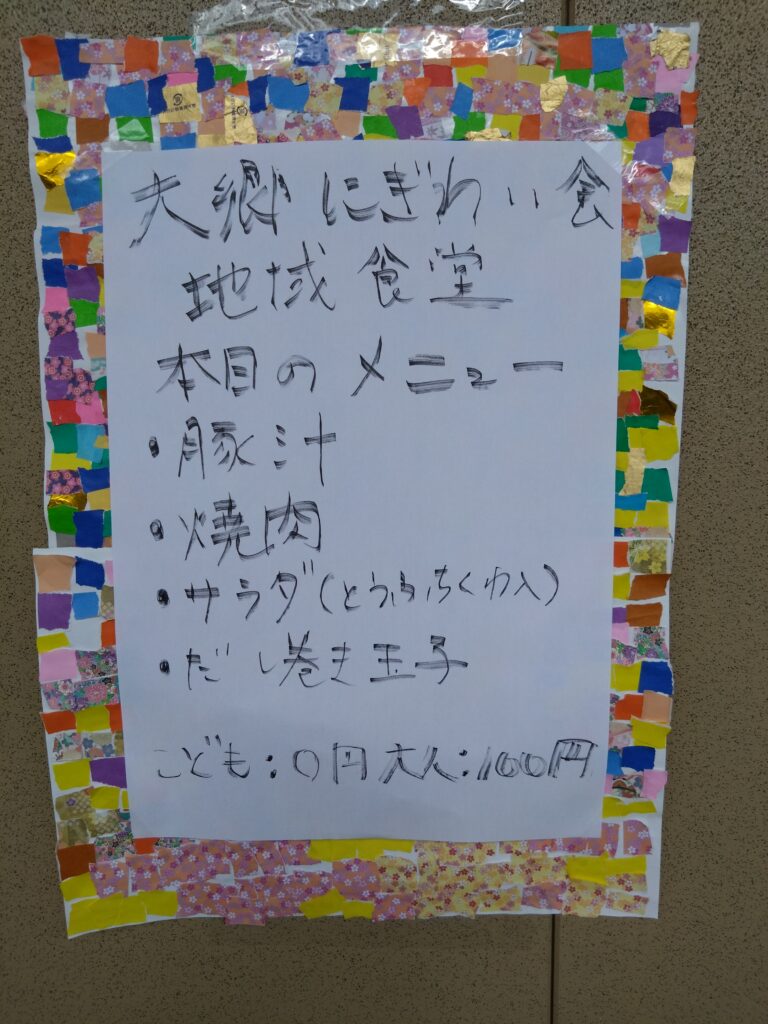 大郷にぎわい食
地域食堂
本日のメニュー
・豚汁
・焼肉
・サラダ(とうふ,ちくわ入)
・だし巻き玉子
こども:0円大人:100円